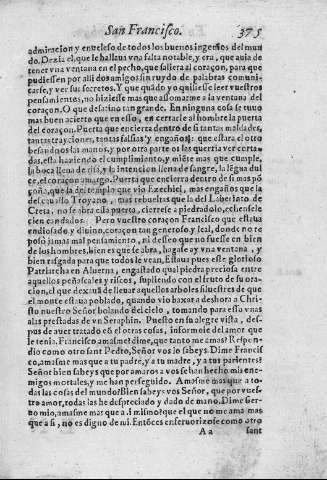 San Francisco. 375
admiracion y enveleso de todos los buenos ingenios del mun
do. Dezia el, que le hallaua vna falta notable, y era, que auia de
tener vna ventana en el pecho, que saliera al coraçon, para que
pudiessen por alli dos amigos sin ruydo de palabras comuni-
carse, y ver sus secretos. Y que quãdo yo quisiesse leer vuestros
pensamientos, no hiziesse mas que assomarme a la ventana del
coraçon. O que desatino tan grande. En ninguna cosa se tuuo
mas buen acierto que en esso, en cerrarle al hombre la puerta
del coraçon. Puerta que encierra dentro de si tantas maldades,
tantas trayciones, tantas falsias y engaños: que estara el otro
besandoos las manos, y por otra parte os las querria ver corta-
das, esta haziendo el cumplimiento, y miẽte mas que cumple,
la boca llena de risa, y la intencion llena de sangre, la lẽgua dul
ce, el coraçon amargo. Puerta que encierra dentro de si mas põ
çoña, que la del templo que vio Ezechiel, mas engaños que la
del cauallo Troyano, mas rebueltas que la del Laberinto de
Creta, no se abra esta puerta, cierrese a piedra lodo, echensele
cien candados. Pero vuestro coraçon Francisco que estaua
endiosado, y diuino, coraçon tan generoso y leal, donde no re
posò jamas mal pensamiento, ni desseo que no fuesse en bien
de los hombres, bien es que se abra, hagase ay vna ventana, y
bien rasgada para que todos le vean. Estaua pues este glorioso
Patriarcha en Aluerna, engastado qual piedra preciosa entre
aquellos peñascales y riscos, supliendo con el fruto de su ora-
cion, el que dexauã de lleuar aquellos arboles siluestres de que
el monte estaua poblado, quando vio baxar a deshora a Chri-
sto nuestro Señor bolando del cielo, tomando para esso vnas
alas prestadas de vn Seraphin. Puesto en su alegre vista, des-
pues de auer tratado cõ el otras cosas, informole del amor que
le tenia. Francisco amasme? dime, que tanto me amas? Respon-
dio como otro sant Pedro, Señor vos lo sabeys. Dime Francis
co, amasme mas que a tu padre, y a tu madre, y a tus parientes?
Señor bien sabeys que por amaros a vos se han hecho mis ene-
migos mortales, y me han perseguido. Amasme mas que a to-
das las cosas del mundo? Bien sabeys vos Señor, que por vues-
tro amor, todas las he despreciado y dado de mano. Dime sier-
uo mio, amasme mas que a ti mismo? que el que no me ama mas
que a si, no es digno de mi. Entõces enferuorizose como otro
A a sant